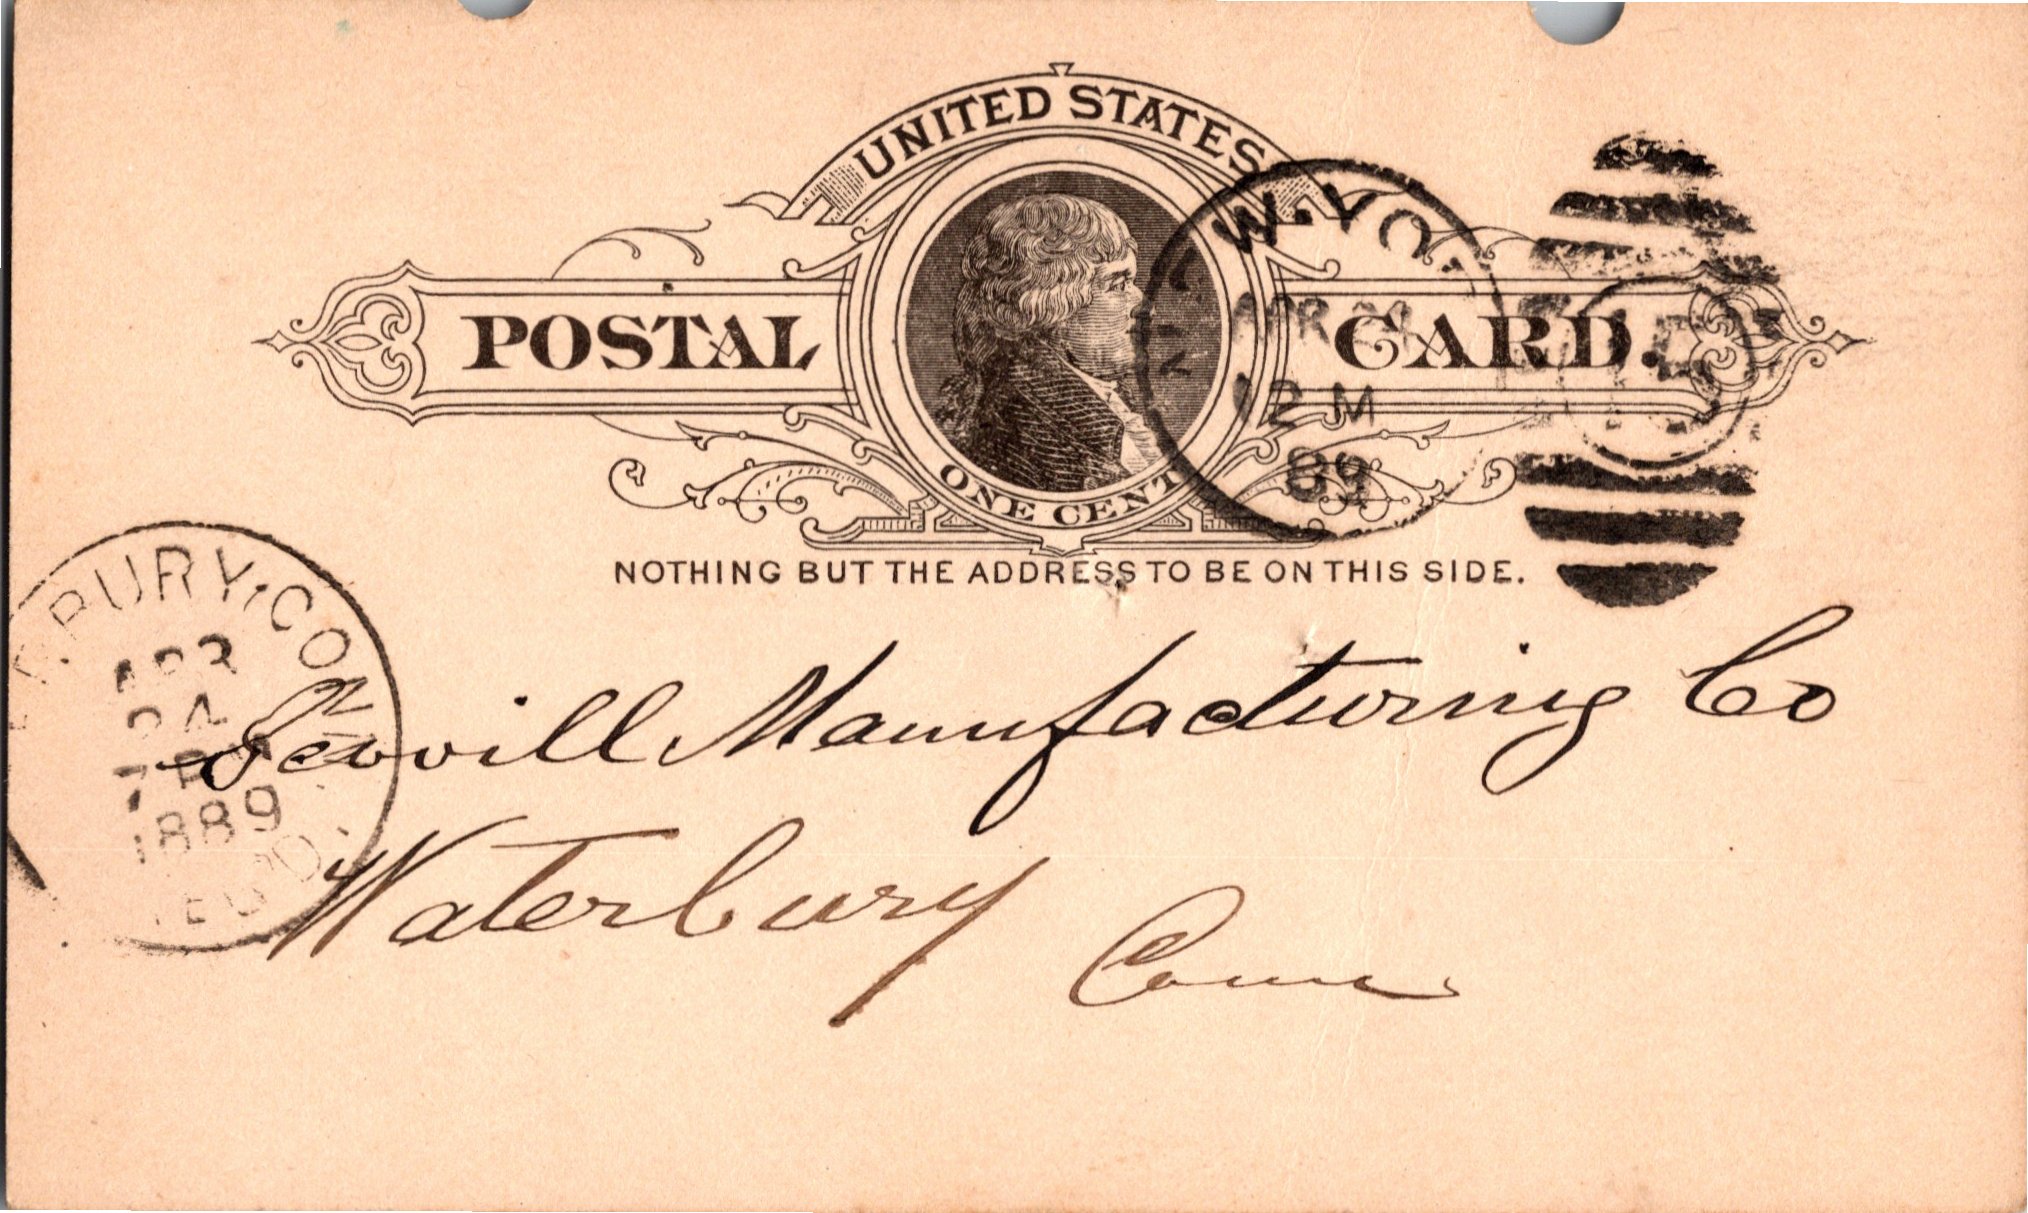 UNITED STATES
POSTAL CARD.
ONE CENT
NOTHING BUT THE ADDRESS TO BE ON THIS SIDE.
NEW YO
APR 24
12 M
89
ERBURY. CONN
APR
24
7
1889
REC'D.
Scovill Manufacturing Co
Waterbury Conn